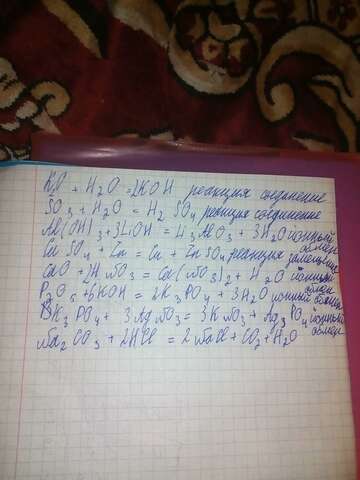 K₂O + H₂O = 2KOH реакция соединение
SO₃ + H₂O = H₂SO₄ реакция соединение
Al(OH)₃ + 3LiOH = Li₃AlO₃ + 3H₂O ионный обмен
CuSO₄ + Zn = Cu + ZnSO₄ реакция замещение
CaO + 2HNO₃ = Ca(NO₃)₂ + H₂O ионный обмен
P₂O₅ + 6KOH = 2K₃PO₄ + 3H₂O ионный обмен
K₃PO₄ + 3AgNO₃ = 3KNO₃ + Ag₃PO₄ ионный обмен
Na₂CO₃ + 2HCl = 2NaCl + CO₂ + H₂O